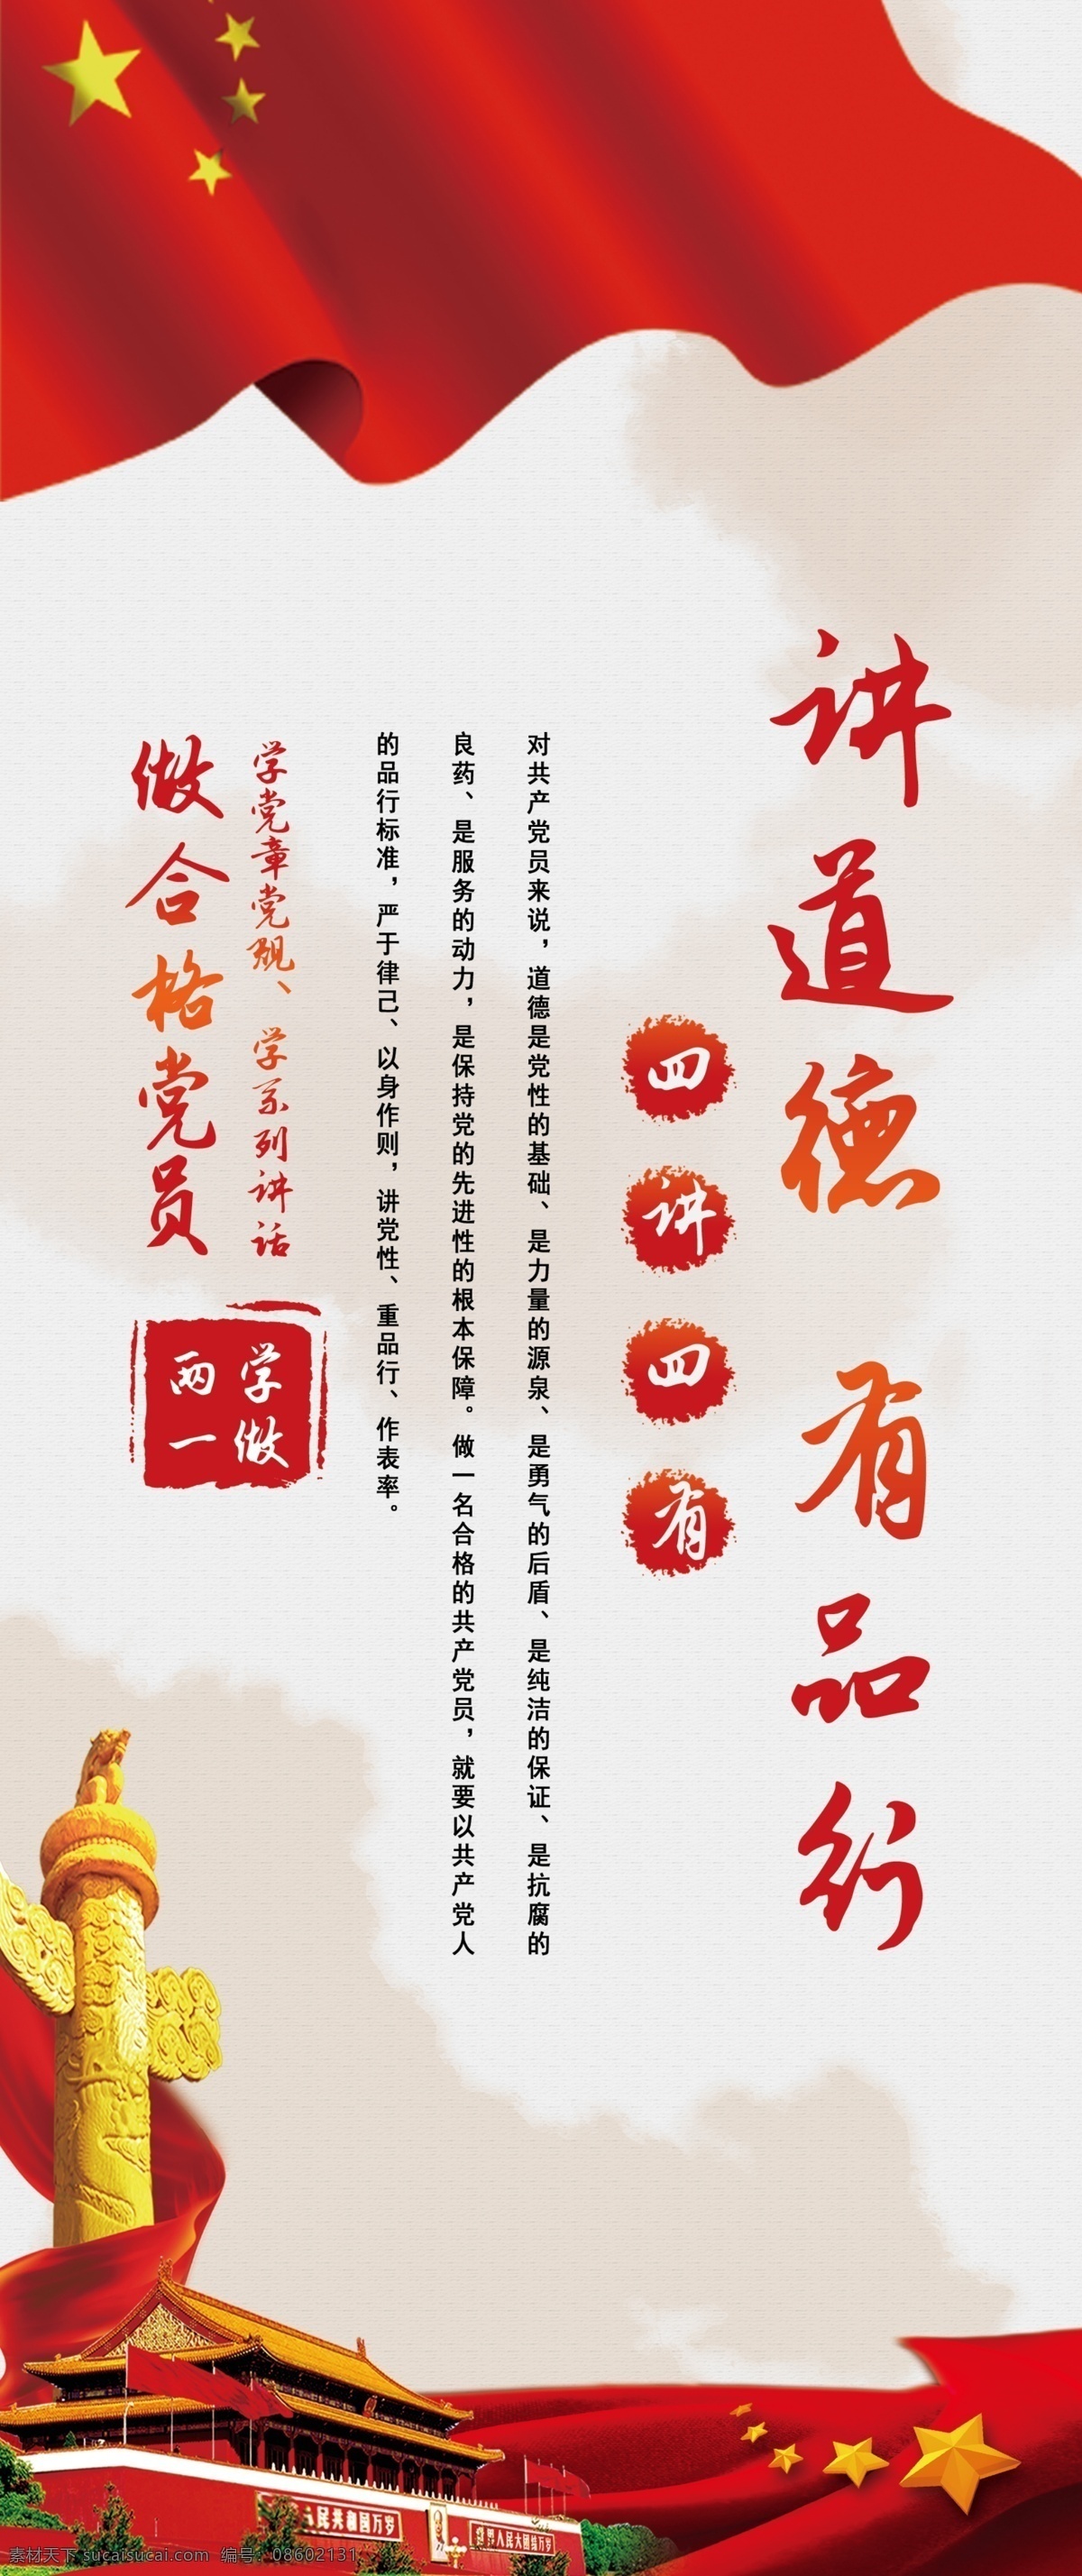 讲道德 有品行
四讲四有
对共产党员来说，道德是党性的基础、是力量的源泉、是勇气的后盾、是纯洁的保证、是抗腐的
良药、是服务的动力，是保持党的先进性的根本保障。做一名合格的共产党员，就要以共产党人
的品行标准，严于律己、以身作则，讲党性、重品行、作表率。
学党章党规、学系列讲话
做合格党员
学做
两一
人民共和国万岁
人民大团结万岁
素材天下 sucaisucai.com 编号：08602131